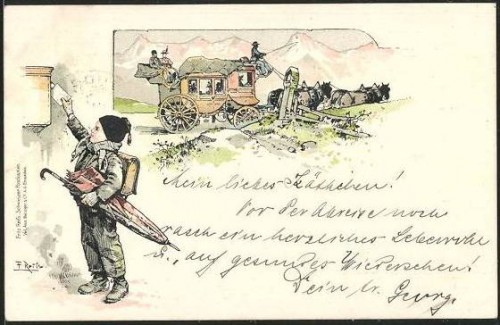 Mein liebes Käthchen!
Vor der Abreise noch
rasch ein herzliches Lebewohl
u. auf gesundes Wiedersehen!
Dein tr. Georg.
F. Reiß
Fritz Reiß, Schweizer Postkarten